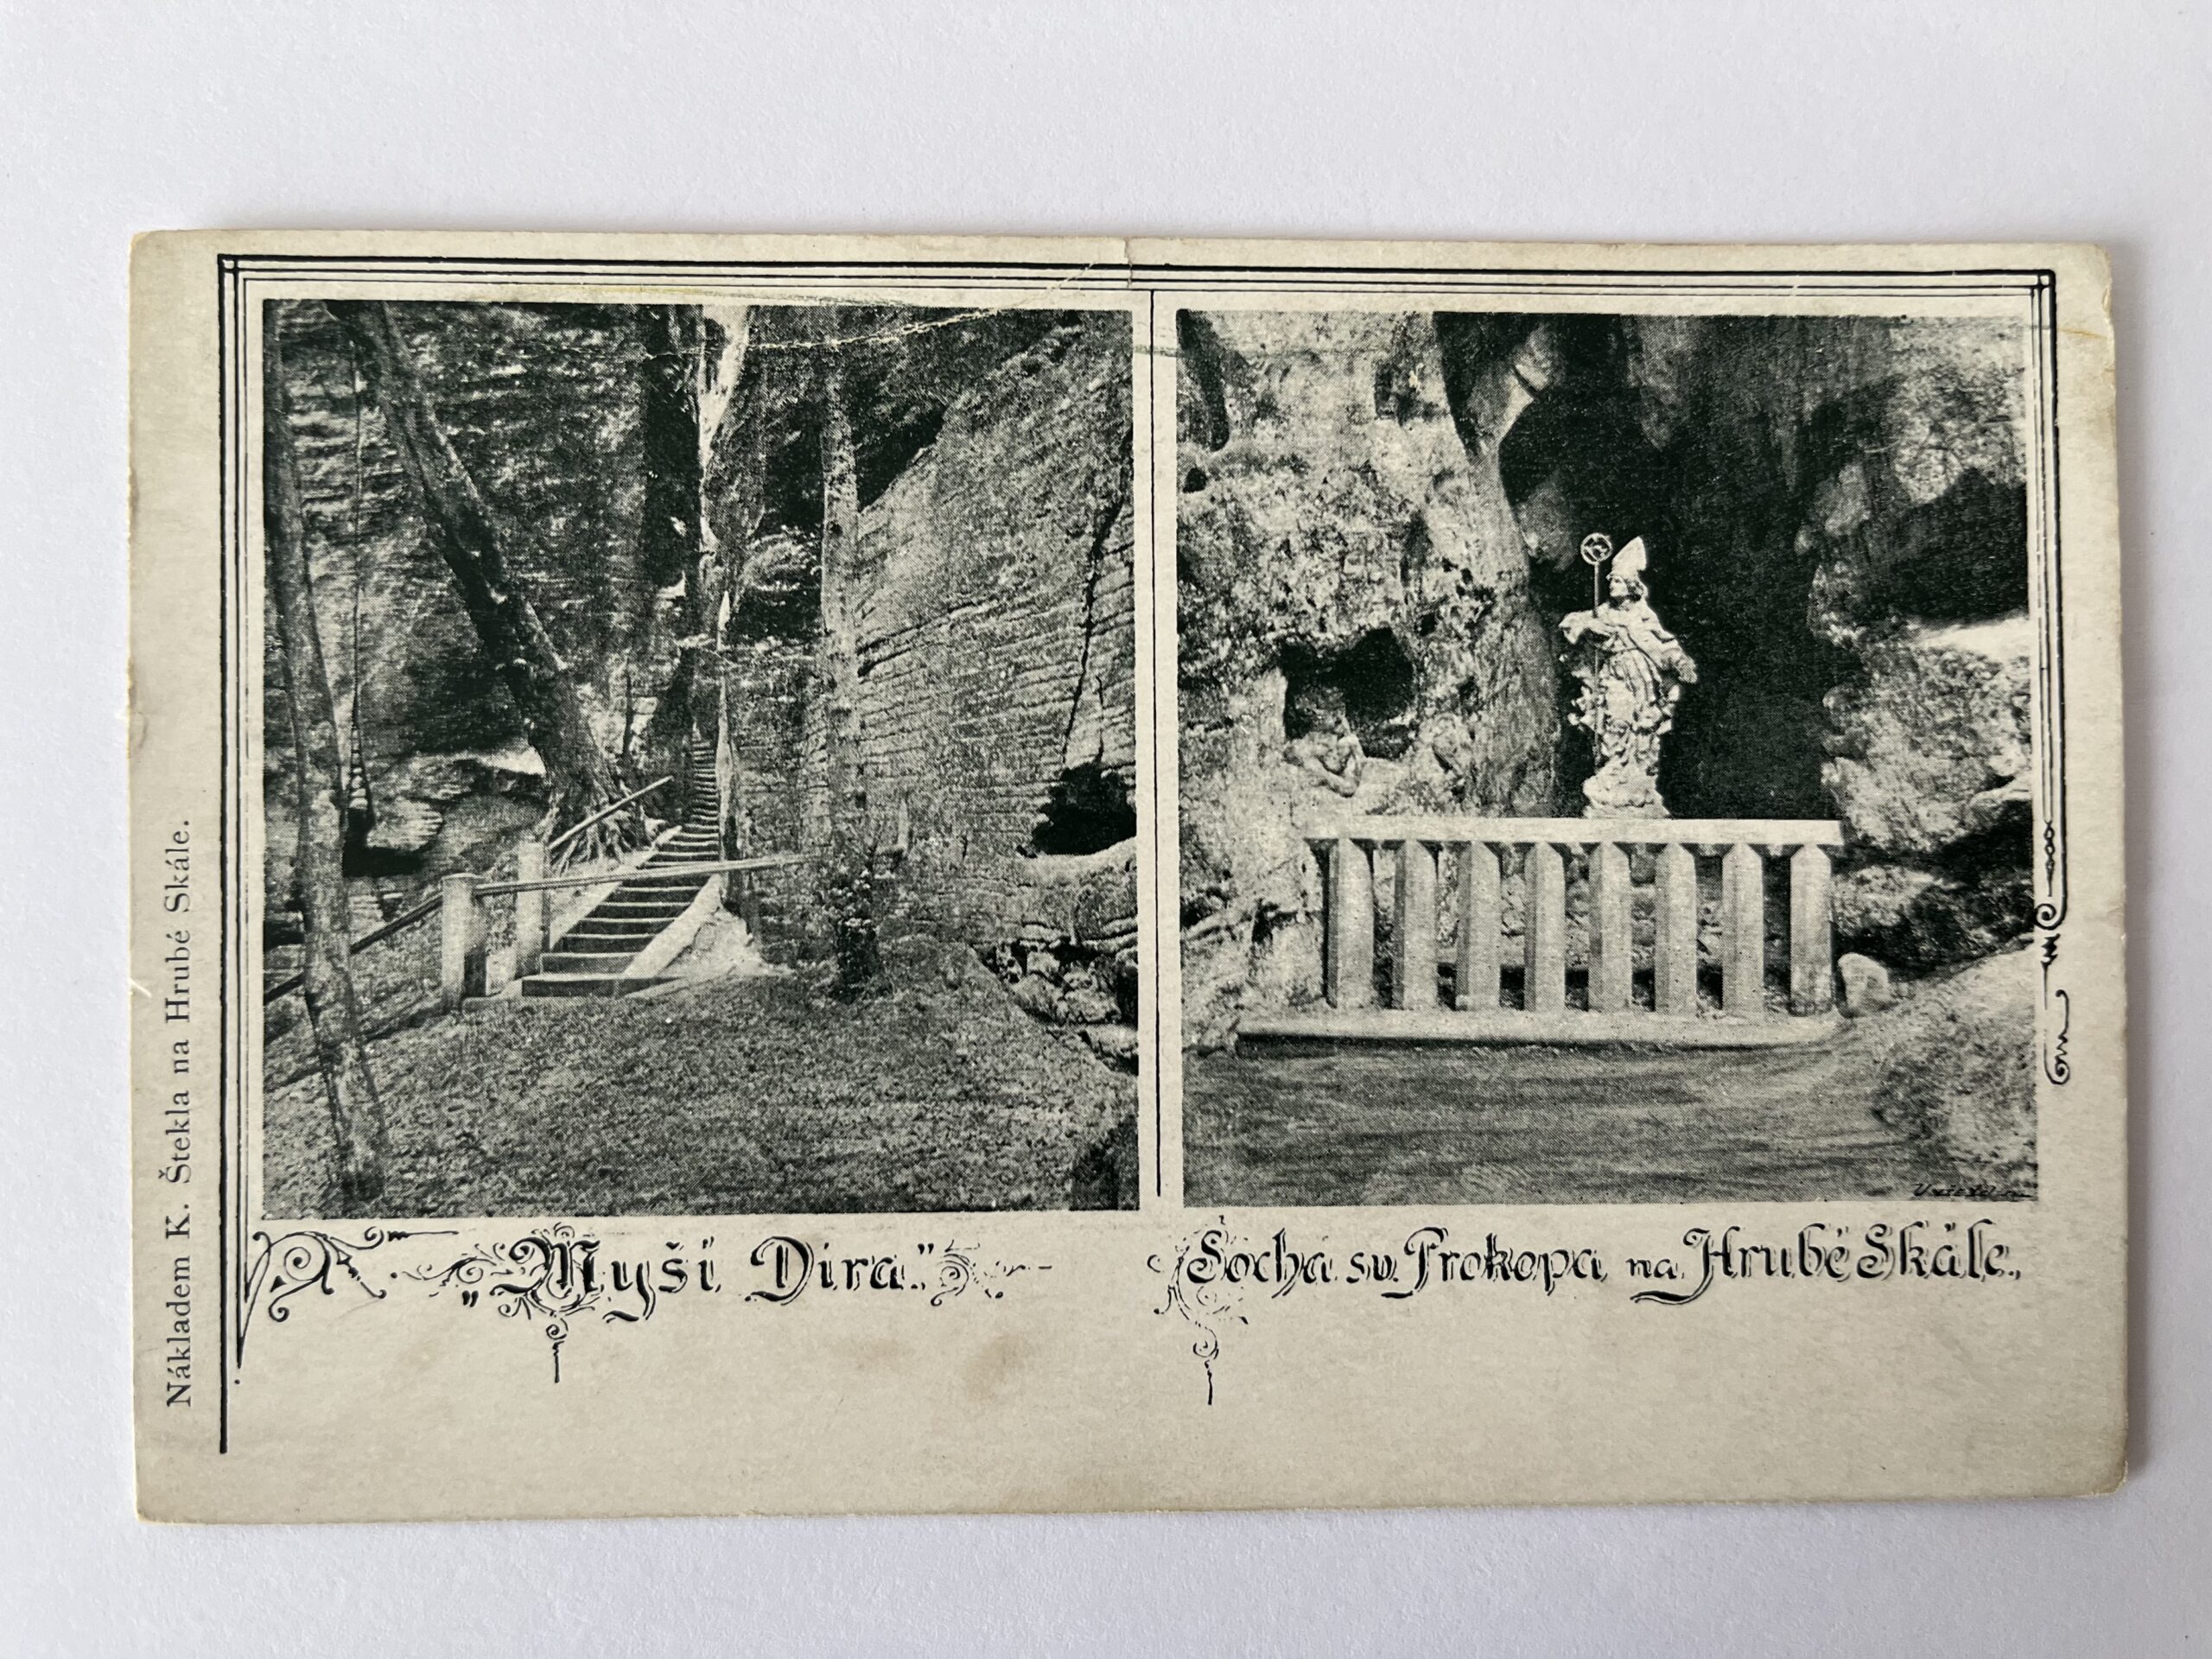 Nákladem K. Štekla na Hrubé Skále.
„Myší Díra."
Socha sv. Prokopa na Hrubé Skále.